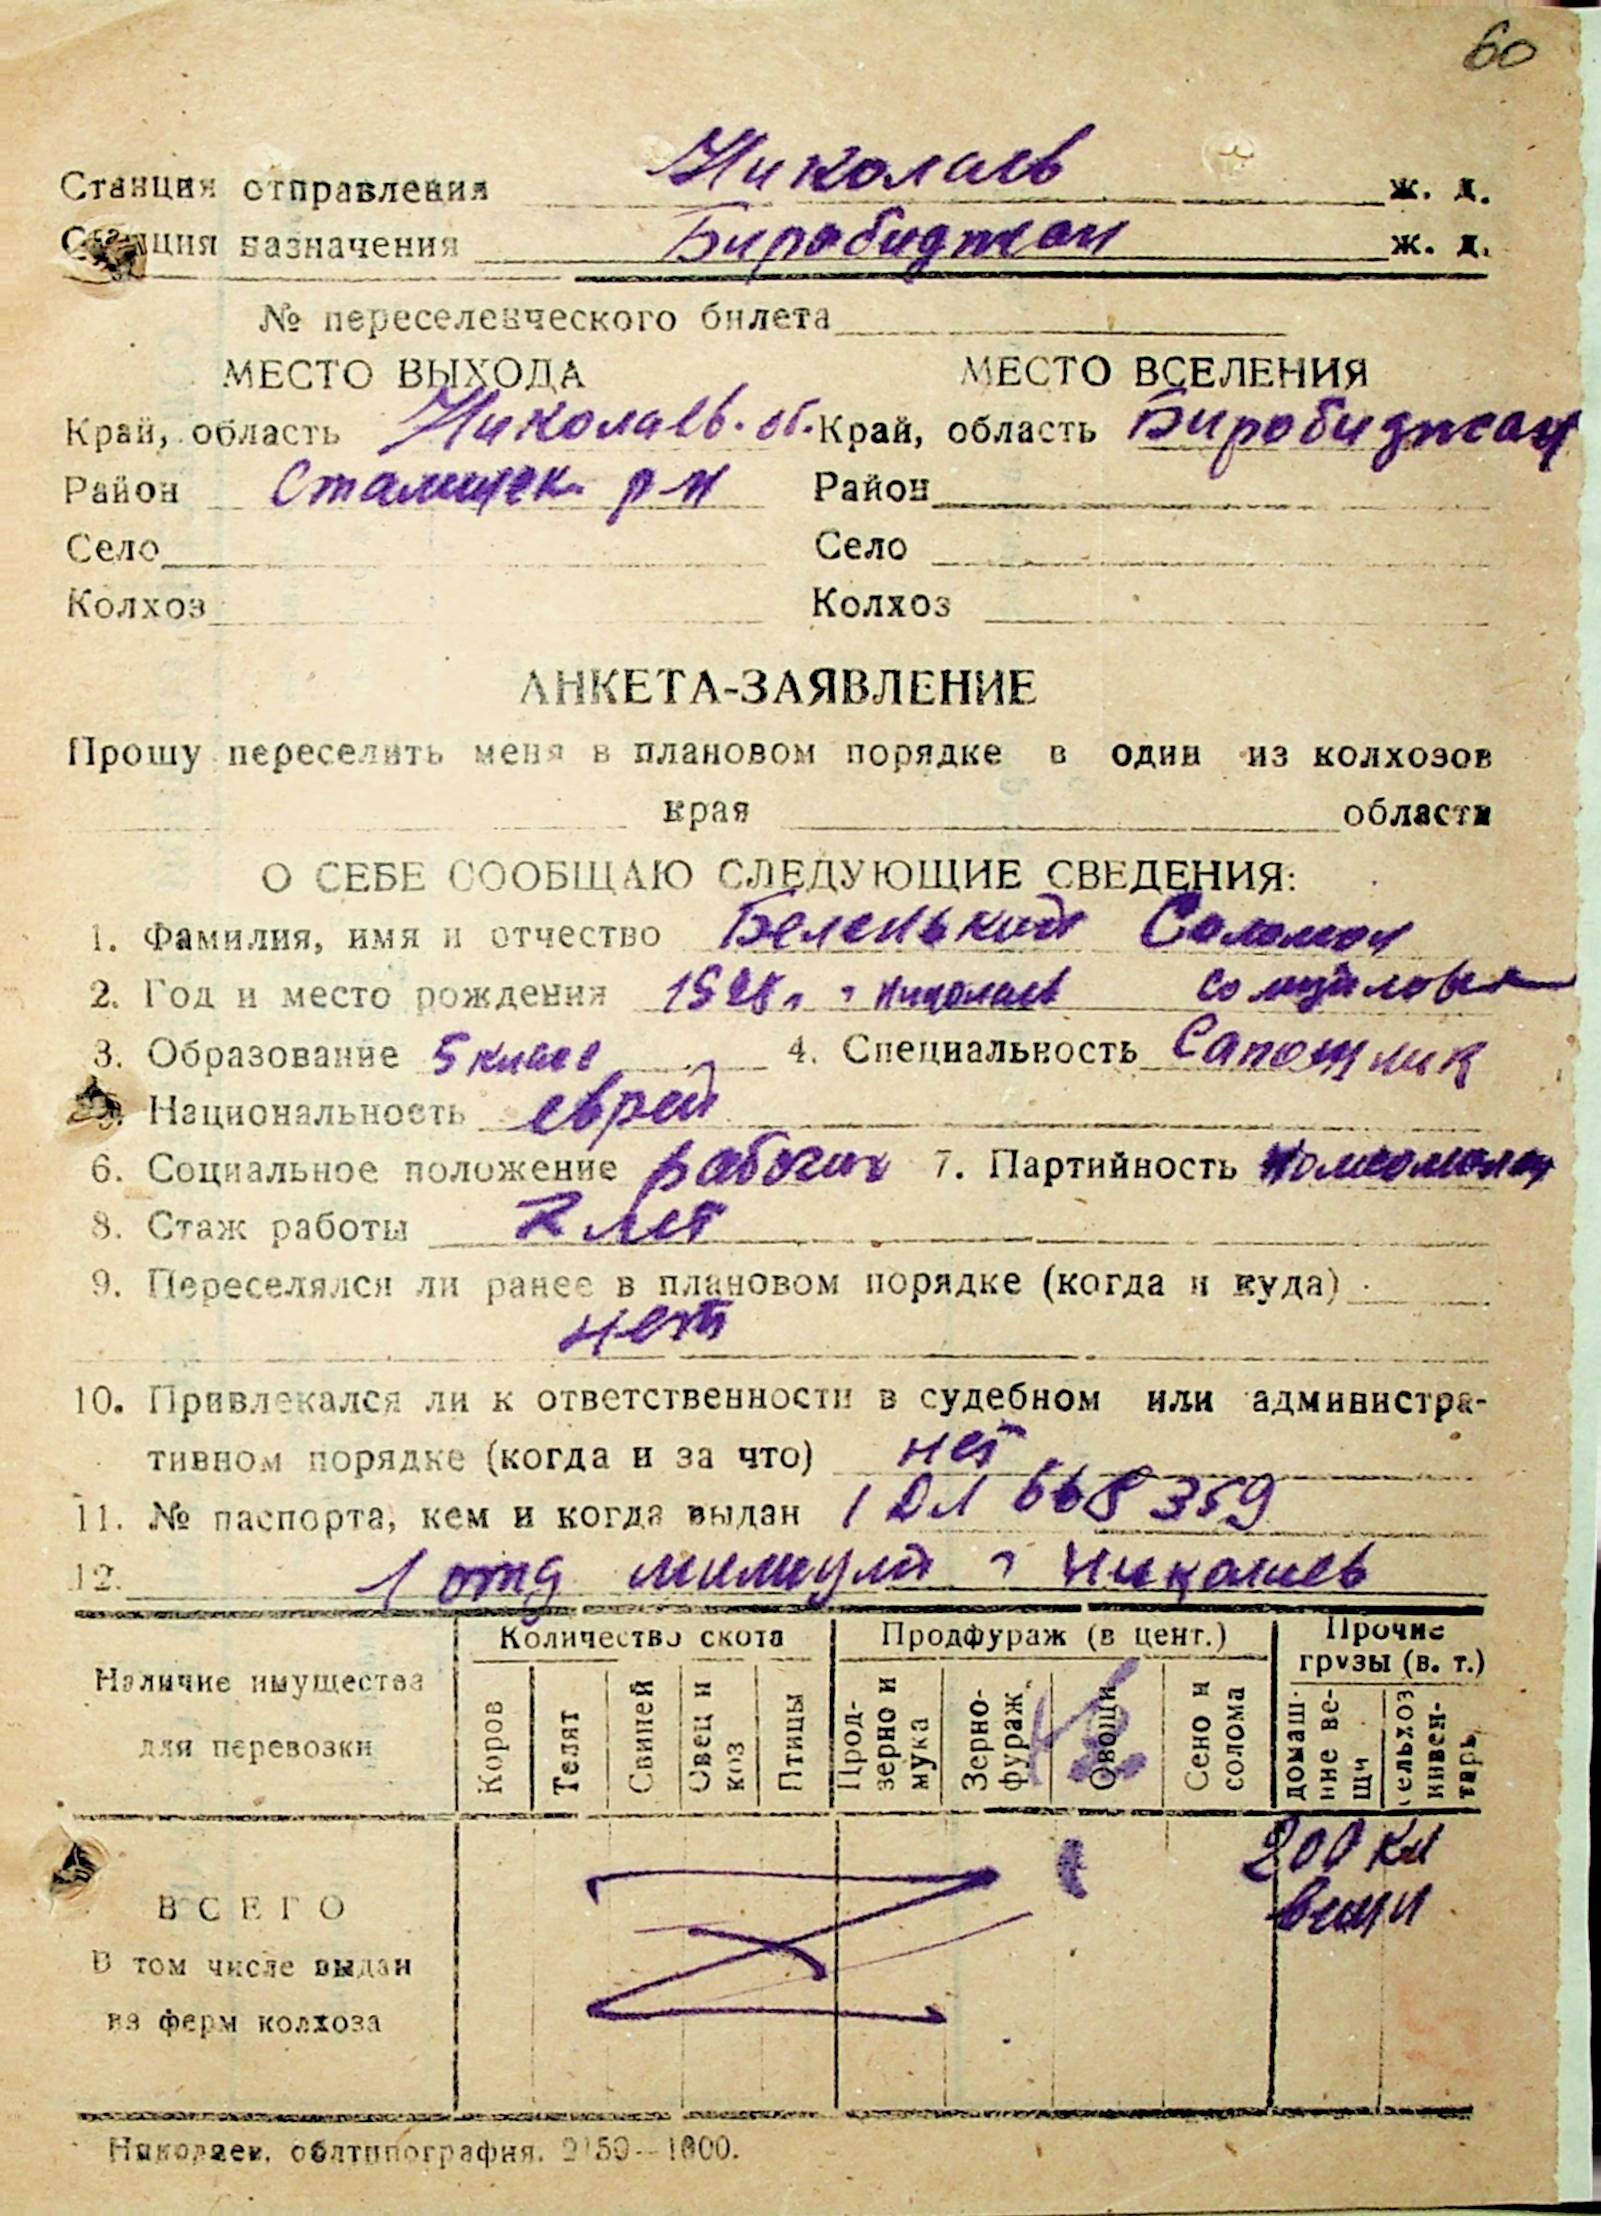 60
Станция отправления Николаев ж. д.
Станция назначения Биробиджан ж. д.
№ переселенческого билета
МЕСТО ВЫХОДА МЕСТО ВСЕЛЕНИЯ
Край, область Николаев. об. Край, область Биробиджан
Район Сталинск. р-н Район
Село Село
Колхоз Колхоз
АНКЕТА-ЗАЯВЛЕНИЕ
Прошу переселить меня в плановом порядке в один из колхозов
края области
О СЕБЕ СООБЩАЮ СЛЕДУЮЩИЕ СВЕДЕНИЯ:
1. Фамилия, имя и отчество Беленький Соломон
2. Год и место рождения г Николаев
3. Образование 5 класс 4. Специальность Сапожник
5. Национальность еврей
6. Социальное положение рабочий 7. Партийность комсомолец
8. Стаж работы 2 лет
9. Переселялся ли ранее в плановом порядке (когда и куда)
нет
10. Привлекался ли к ответственности в судебном или администра-
тивном порядке (когда и за что) нет
11. № паспорта, кем и когда выдан 668359
12. 1 отд милиции г Николаев
Наличие имущества для перевозки
Количество скота Продфураж (в цент.) Прочие грузы (в. т.)
Коров Телят Свиней Овец и коз Птицы Прод-зерно и мука Зерно-фураж Овощи Сено и солома домаш-ние ве-щи сельхоз инвен-тарь
200 кл
вещи
ВСЕГО
В том числе выдан
из ферм колхоза
Николаев, облтипография. 2159—1000.